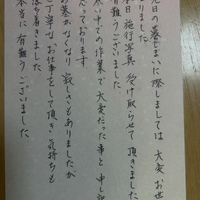 先日の墓じまいに際しましては 大変お世
なりました
施行写真 受け取らせて頂きました
有難うございました
い中での作業で大変だった事と申し訳
っております
お墓がなくなり 寂しさもありましたが
ご丁寧なお仕事をして頂き 気持ちも
落ち着きました
本当に有難うございました